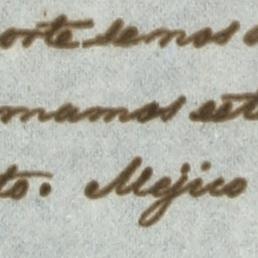 orte semos a
mamos est
to. Mejico